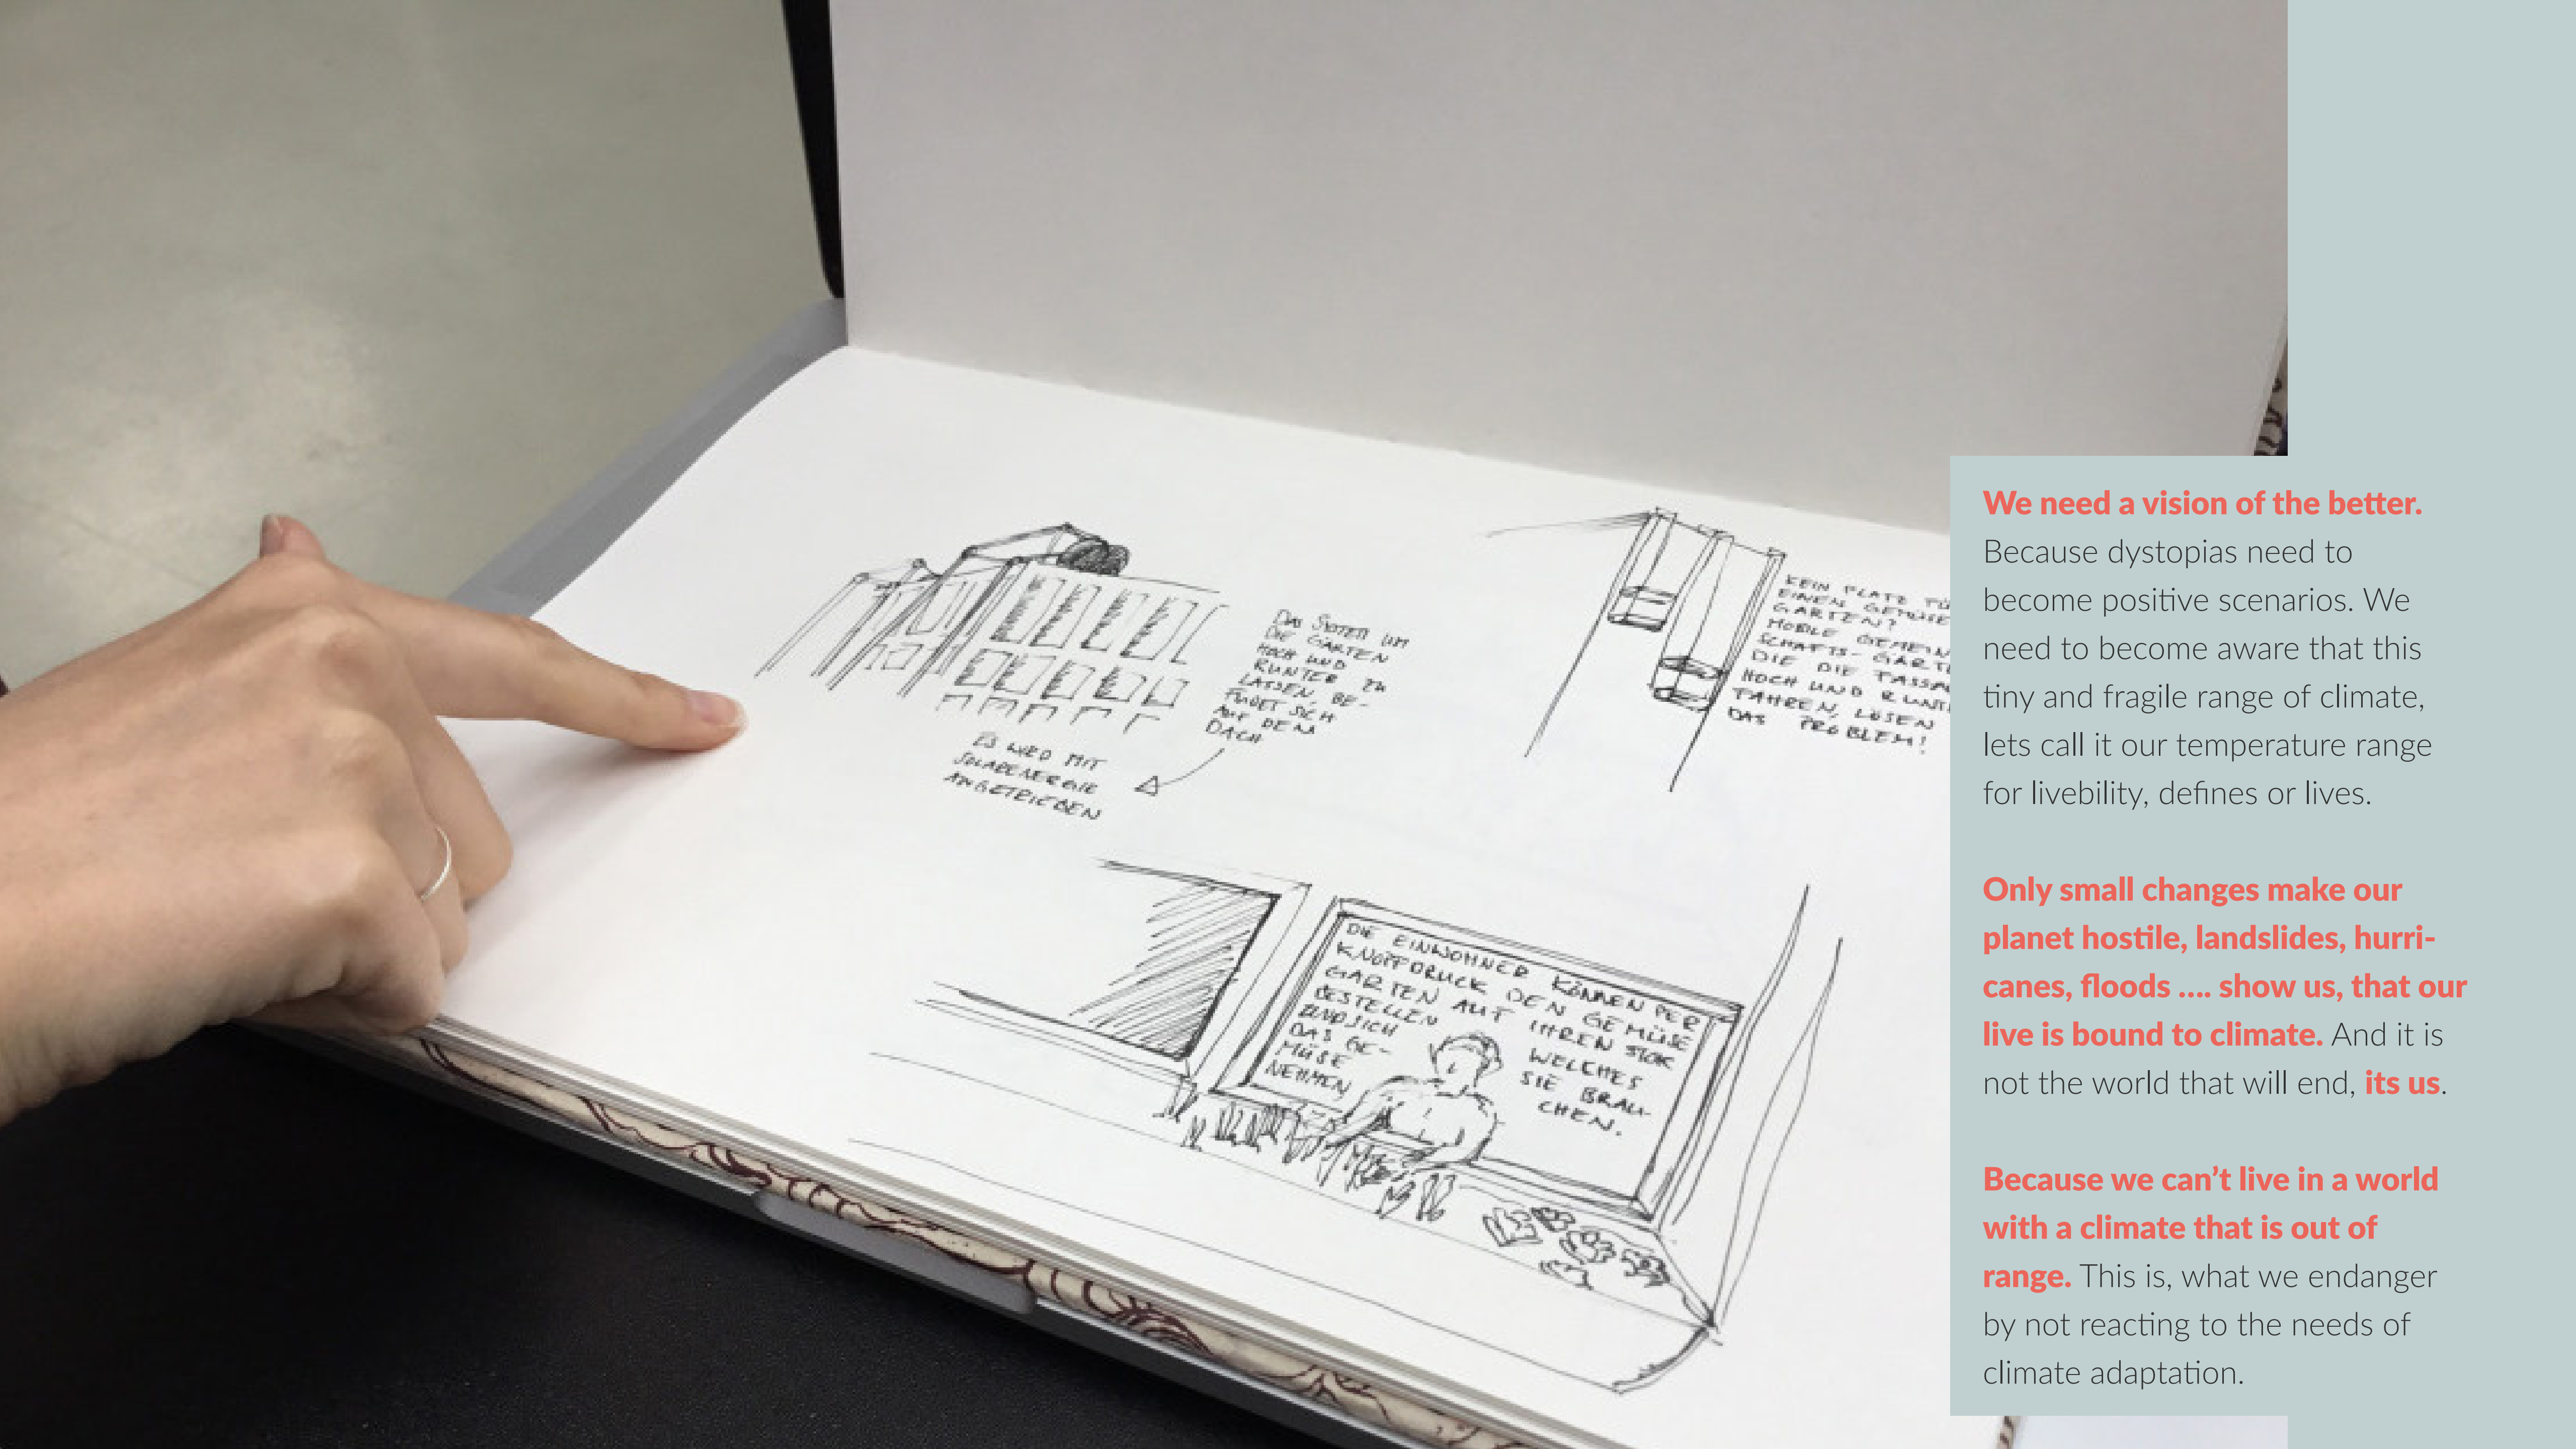 DAS SYSTEM UM
DIE GÄRTEN
HOCH UND
RUNTER ZU
LASSEN, BE-
FINDET SICH
AUF DEM
DACH
ES WIRD MIT
SOLARENERGIE
ANGETRIEBEN
KEIN PLATZ FÜ
EINEN GEMÜSE
GARTEN?
MOBILE GEMEIN
SCHAFTS-GÄRT
DIE DIE FASSA
HOCH UND RUNT
FAHREN, LÖSEN
DAS PROBLEM!
DIE EINWOHNER KÖNNEN PER
KNOPFDRUCK DEN GEMÜSE
GARTEN AUF IHREN STOK
BESTELLEN
UND SICH
DAS GE-
MÜSE
NEHMEN
WELCHES
SIE BRAU-
CHEN.
We need a vision of the better.
Because dystopias need to
become positive scenarios. We
need to become aware that this
tiny and fragile range of climate,
lets call it our temperature range
for livebility, defines or lives.
Only small changes make our
planet hostile, landslides, hurri-
canes, floods .... show us, that our
live is bound to climate. And it is
not the world that will end, its us.
Because we can't live in a world
with a climate that is out of
range. This is, what we endanger
by not reacting to the needs of
climate adaptation.